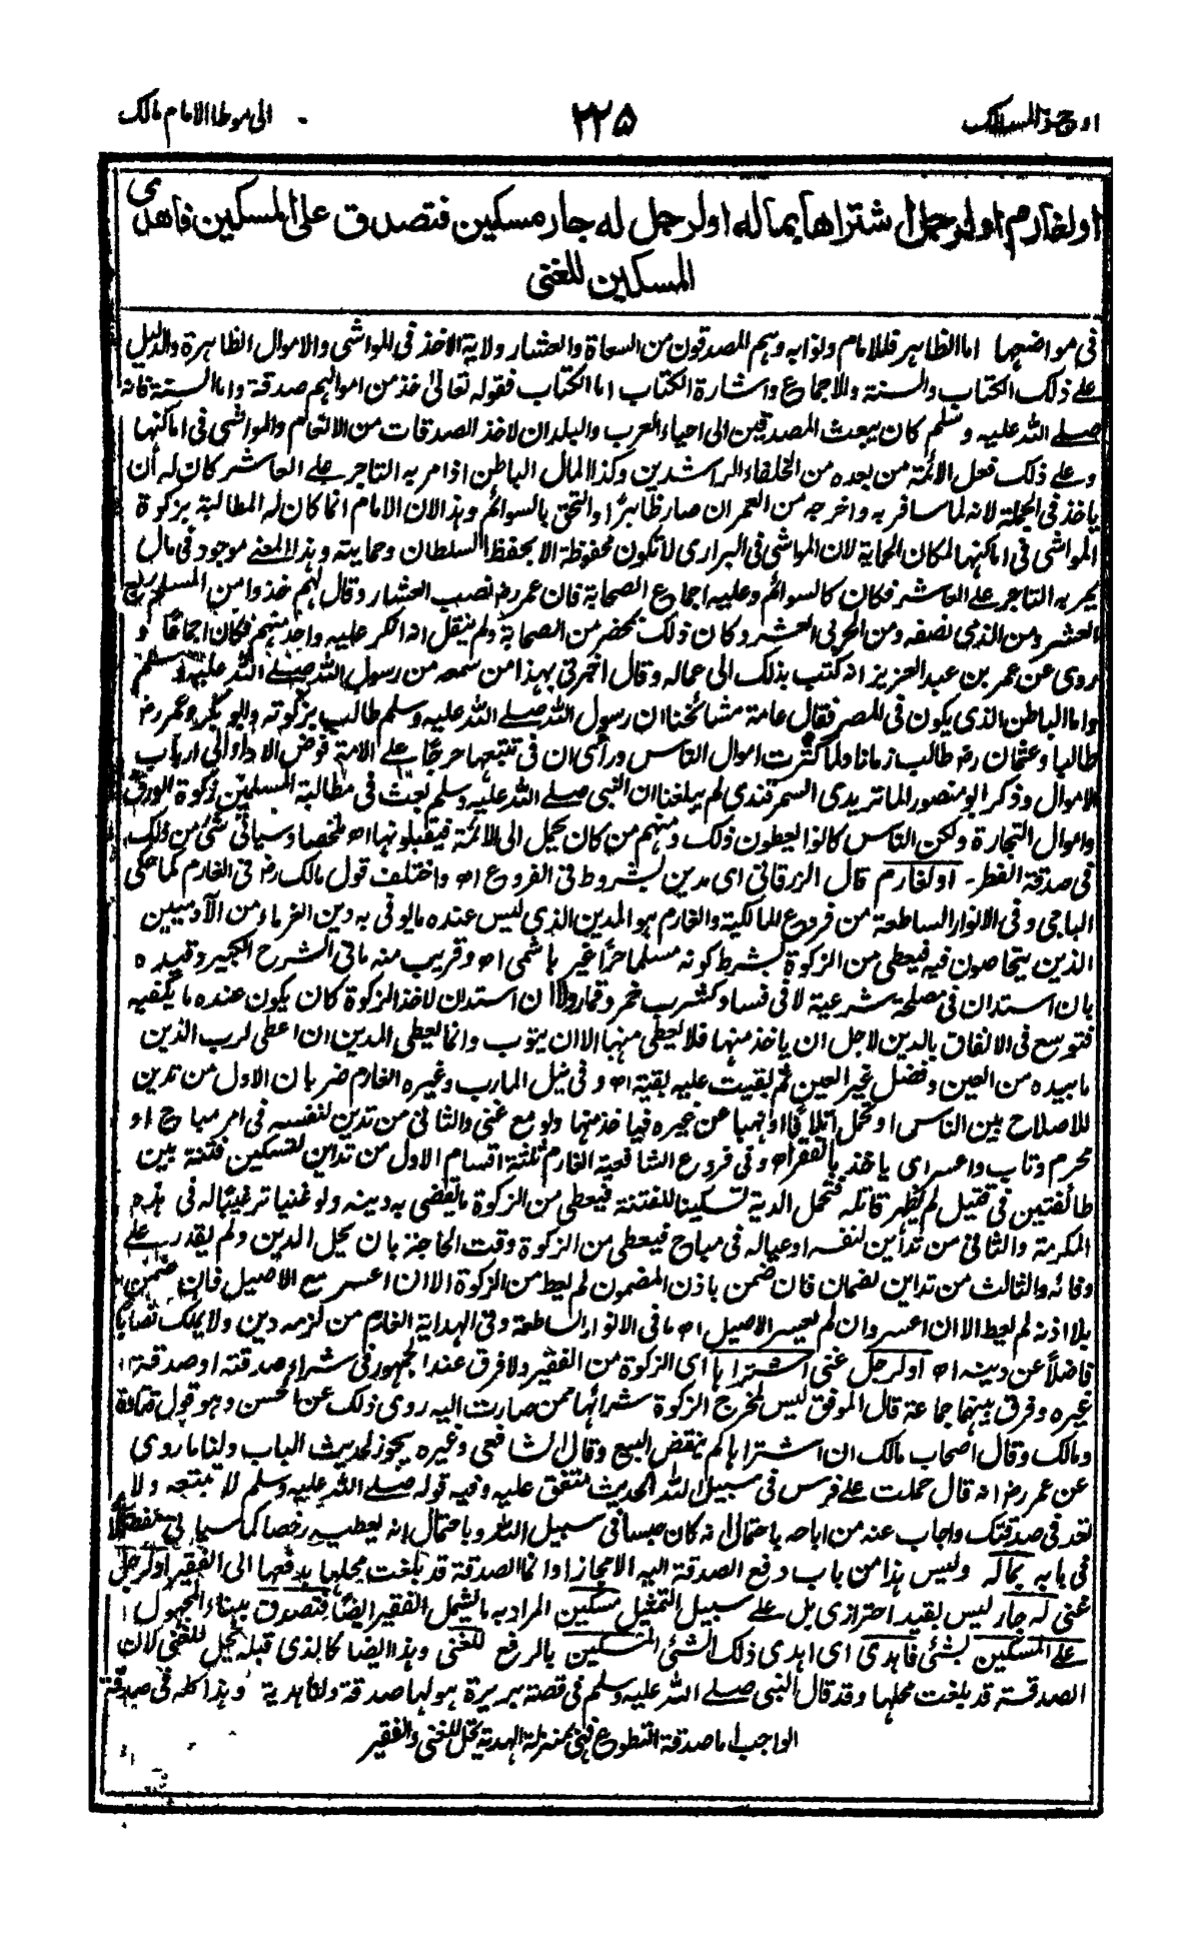 اوجز المسالك ٢٢٥ الى موطا الامام مالك
او لغارم او لرجل اشتراها بماله او لرجل له جار مسكين فتصدق على المسكين فاهدى
المسكين للغنى
فى مواضعها اما الظاهر فللامام ونوابه وهم المصدقون من السعاة والعشار ولاية الاخذ فى المواشى والاموال الظاهرة والدليل
على ذلك الكتاب والسنة والاجماع واشارة الكتاب اما الكتاب فقوله تعالى خذ من اموالهم صدقة واما السنة فانه
صلى الله عليه وسلم كان يبعث المصدقين الى احياء العرب والبلدان لاخذ الصدقات من الانعام والمواشى فى اماكنها
وعلى ذلك فعل الائمة من بعده من الخلفاء الراشدين وكذا المال الباطن اذا مر به التاجر على العاشر كان له أن
ياخذ فى الجملة لانه لما سافر به واخرجه من العمران صار ظاهرًا والتحق بالسوائم وهذا لان الامام انما كان له المطالبة بزكوة
المواشى فى اماكنها لمكان الحماية لان المواشى فى البرارى لا تكون محفوظة الا بحفظ السلطان وحمايته وهذا المعنى موجود فى مال
يمر به التاجر على العاشر فكان كالسوائم وعليه اجماع الصحابة فان عمر رض نصب العشار وقال لهم خذوا من المسلم ربع
العشر ومن الذمى نصفه ومن الحربى العشر وكان ذلك بمحضر من الصحابة ولم ينقل انه انكر عليه واحد منهم فكان اجماعًا و
روى عن عمر بن عبد العزيز انه كتب بذلك الى عماله وقال اخبرنى بهذا من سمعه من رسول الله صلى الله عليه وسلم
واما الباطن الذى يكون فى المصر فقال عامة مشائخنا ان رسول الله صلى الله عليه وسلم طالب بزكوته وابو بكر وعمر رض
طالبا وعثمان رض طالب زمانا ولما كثرت اموال الناس ورأى ان فى تتبعها حرجًا على الامة فوض الاداء الى ارباب
الاموال وذكر ابو منصور الماتريدى السمرقندى لم يبلغنا ان النبى صلى الله عليه وسلم بعث فى مطالبة المسلمين بزكوة الورق
واموال التجارة ولكن الناس كانوا يعطون ذلك ومنهم من كان يحمل الى الائمة فيقبلونها اھ ملخصا وسياتى شئ من ذلك
فى صدقة الفطر - او لغارم قال الزرقانى اى مدين بشروط فى الفروع اھ واختلف قول مالك رض فى الغارم كما حكى
الباجى وفى الانوار الساطعة من فروع المالكية والغارم هو المدين الذى ليس عنده مايوفى به دين الغرماء من الآدميين
الذين يتحاصون فيه فيعطى من الزكوة بشرط كونه مسلما حرًا غير هاشمى اھ وقريب منه مافى الشرح الكبير وقيده
بان استدان فى مصلحة شرعية لا فى فساد كشرب خمر وقمار ولا ان استدان لاخذ الزكوة كان يكون عنده ما يكفيه
فتوسع فى الانفاق بالدين لاجل ان ياخذ منها فلا يعطى منها الا ان يتوب وانما يعطى المدين ان اعطى لرب الدين
ما بيده من العين وفضل غير العين ثم بقيت عليه بقية اھ وفى نيل المارب وغيره الغارم ضربان الاول من تدين
للاصلاح بين الناس او تحمل اتلافًا او نهبا عن غيره فياخذ منها ولو مع غنى والثانى من تدين لنفسه فى امر مباح او
محرم وتاب واعسر اى ياخذ بالفقر اھ وفى فروع الشافعية الغارم ثلثة اقسام الاول من تداين لتسكين فتنة بين
طائفتين فى قتيل لم يظهر قاتله فتحمل الدية تسكينا للفتنة فيعطى من الزكوة مايقضى به دينه ولو غنيا ترغيبًا له فى هذه
المكرمة والثانى من تدأين لنفسه او عياله فى مباح فيعطى من الزكوة وقت الحاجز بان يحل الدين ولم يقدر على
وفائه والثالث من تداين لضمان فان ضمن باذن المضمون لم يعط من الزكوة الا ان اعسر مع الاصيل فان ضمن
بلا اذنه لم يعط الا ان اعسر وان لم يعسر الاصيل اھ مافى الانوار الساطعة وفى الهداية الغارم من لزمه دين ولا يملك نصابًا
فاضلًا عن دينه اھ او لرجل غنى اشتراها اى الزكوة من الفقير ولا فرق عند الجمهور فى شراء صدقته او صدقة
غيره وفرق بينهما جماعة قال الموفق ليس لمخرج الزكوة شرائها ممن صارت اليه روى ذلك عن الحسن وهو قول قتادة
ومالك وقال اصحاب مالك ان اشتراها لم ينقض البيع وقال الشافعى وغيره يجوز لحديث الباب ولنا ما روى
عن عمر رض انه قال حملت على فرس فى سبيل الله الحديث متفق عليه وفيه قوله صلى الله عليه وسلم لا تبتعه ولا
تعد فى صدقتك واجاب عنه من اباحه باحتمال انه كان حبسا فى سبيل الله وباحتمال انه يعطيه رخصا كما سياتى
فى بابه بماله وليس هذا من باب دفع الصدقة اليه الا مجازا وانما الصدقة قد بلغت محلها بدفعها الى الفقير او لرجل
غنى له جار ليس بقيد احترازى بل على سبيل التمثيل مسكين المراد به مايشمل الفقير ايضًا فتصدق ببناء المجهول
على المسكين بشئ فاهدى اى اهدى ذلك الشئ المسكين بالرفع للغنى وهذا ايضا كالذى قبله يحل للغنى لان
الصدقة قد بلغت محلها وقد قال النبى صلى الله عليه وسلم فى قصة بريرة هو لها صدقة ولنا هدية وهذا كله فى صدقة
الواجب اما صدقة التطوع فهى بمنزلة الهدية يحل للغنى والفقير